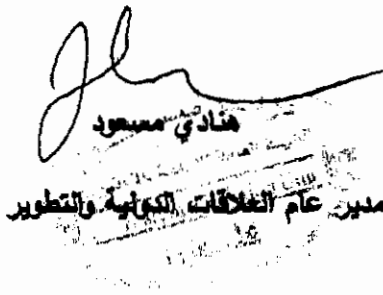 هنادي مسعود
مدير عام العلاقات الدولية والتطوير